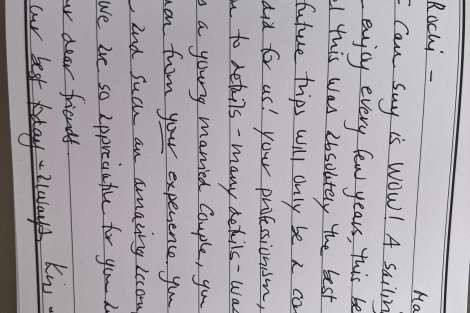 Rochi -
Ma
I can say is WOW! A sailin
enjoy every few years, this be
this was absolutely the best
future trips will only be a co
did for us! Your professionism,
to details - many details - was
s a young married couple, you
from your experience. You
and such an amazing accom
We are so appreciative for you
dear friends
our best today + always Kim +